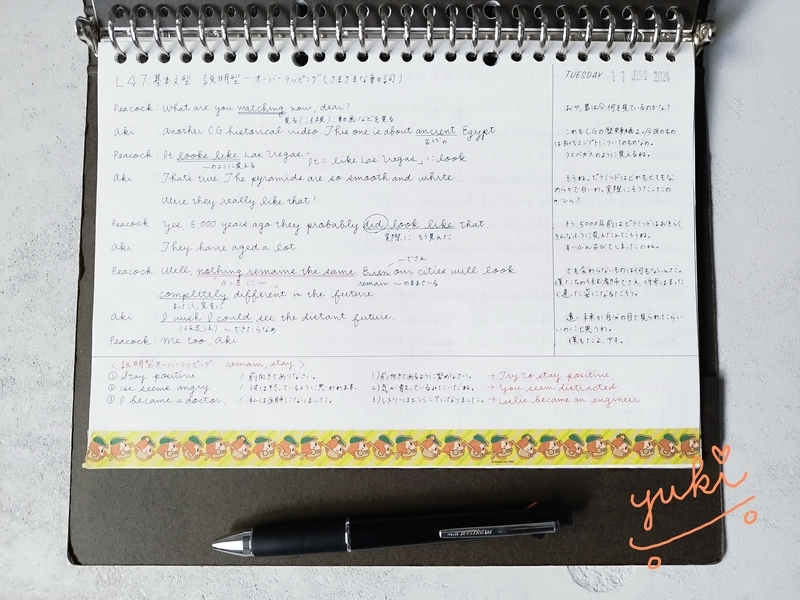 L47 基本文型 説明型 - オーバーラッピング (さまざまな動詞)
TUESDAY 11 JUN 2024
Peacock : What are you watching now, dear?
見る (動画などを見る
Aki Another CG historical video This one is about ancient Egypt.
古代の
Peacock : It looks like Las Vegas -
~のように見える
It = like Las Vegas, look
Aki That's ture The pyramids are so smooth and white.
Were they really like that?
Peacock Yes, 5,000 years ago they probably did look like that
実際に そう見えた
Aki They have aged a lot
Peacock : Well, nothing remains the same Even our cities will look
~でさえ
remain ~のままでいる
completely different in the future.
まったく、完全に
Aki I wish I could see the distant future.
(仮定法) ~できたらなあ
Peacock : Me too, Aki.
おや、君は今、何を見ているのかな?
これもCGの歴史動画よ。今回のもの
は古代エジプトについてのものなの。
ラスベガスのように見えるね。
そうね。ピラミッドはとてもなめ
らかで白いわ。実際にそうだったの
かしら?
そう、5000年前はピラミッドはおそらく
そんなふうに見えたんだろうね。
ずいぶん古びてしまったのね。
でも変わらないものは何もないんだ。
僕たちの住む都市でさえ、将来はまった
く違った姿になるだろう。
遠い未来が自分の目で見られたらい
いのにと思うわ。
僕もだよ、アキ。
< 説明型オーバーラッピング : remain, stay >
① Stay positive / 前向きでありなさい。
② He seems angry / 彼は怒っているように思われます。
③ I became a doctor. / 私は医師になりました。
1) 前向きであるように努めなさい。 → Try to stay positive
2) 気が散っているみたいだね。 → You seem distracted
3) レスリーはエンジニアになりました。 → Leslie became an engineer
uni JETSTREAM
yuki